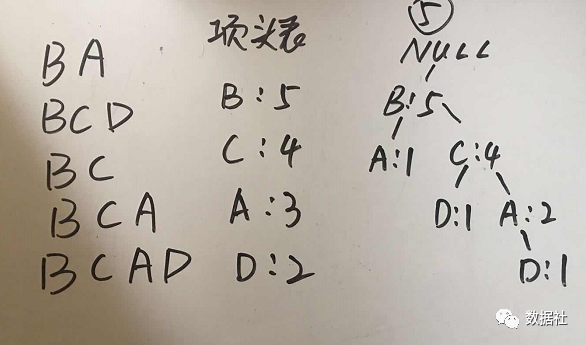 BA
BCD
BC
BCA
BCAD
项头表
B:5
C:4
A:3
D:2
⑤
NULL
B:5
A:1 C:4
D:1 A:2
D:1
数据社